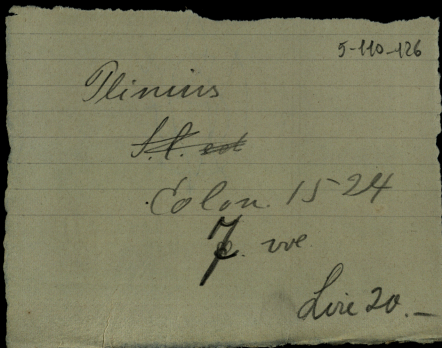 5-110-126
Plinius
S.l. ed
Colon. 1524
7. vve
Lire 20.—